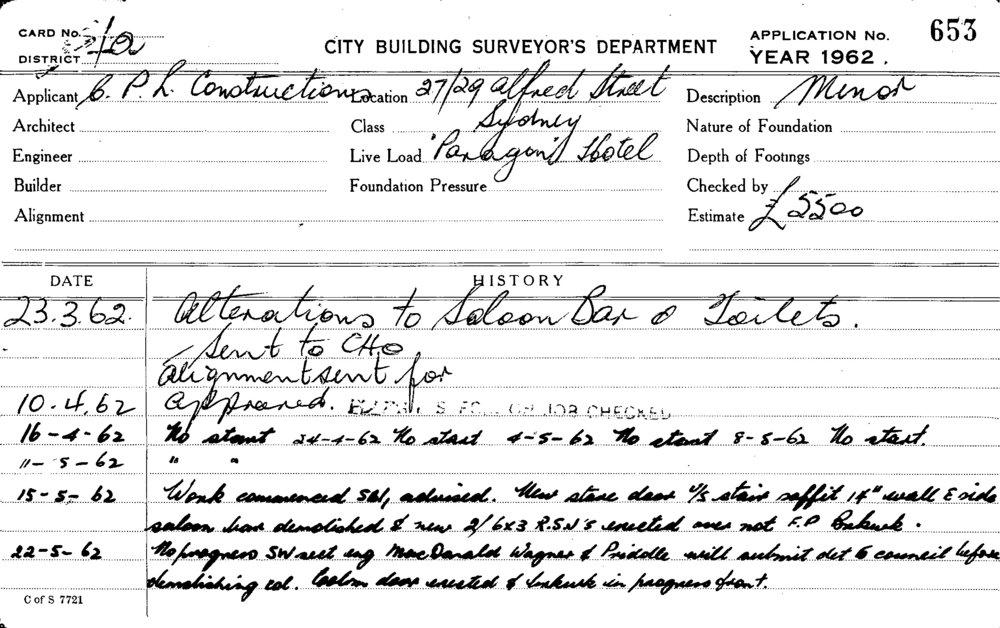 CARD No.
CITY BUILDING SURVEYOR'S DEPARTMENT
APPLICATION No. 653
YEAR 1962.
DISTRICT
Applicant C. P. L. Constructions Location 27/29 Alfred Street Description Minor
Architect Class Sydney Nature of Foundation
Engineer Live Load "Paragon" Hotel Depth of Footings
Builder Foundation Pressure Checked by
Alignment Estimate £5500
DATE HISTORY
23.3.62. Alterations to Saloon Bar & Toilets.
Sent to CHO
Alignment sent for
10.4.62 Approved. JOB CHECKED
16-4-62 No start 24-4-62 No start 4-5-62 No start 8-5-62 No start.
11-5-62 " "
15-5-62 Work commenced advised. New store door u/s stair soffit 14" wall E side
saloon bar demolished & new 2/6x3 R.S.J's erected over not F.P Bwkwk.
22-5-62 No progress eng MacDonald Wagner & Priddle will submit det to council before
demolishing col. door erected & in progress front.
C of S 7721